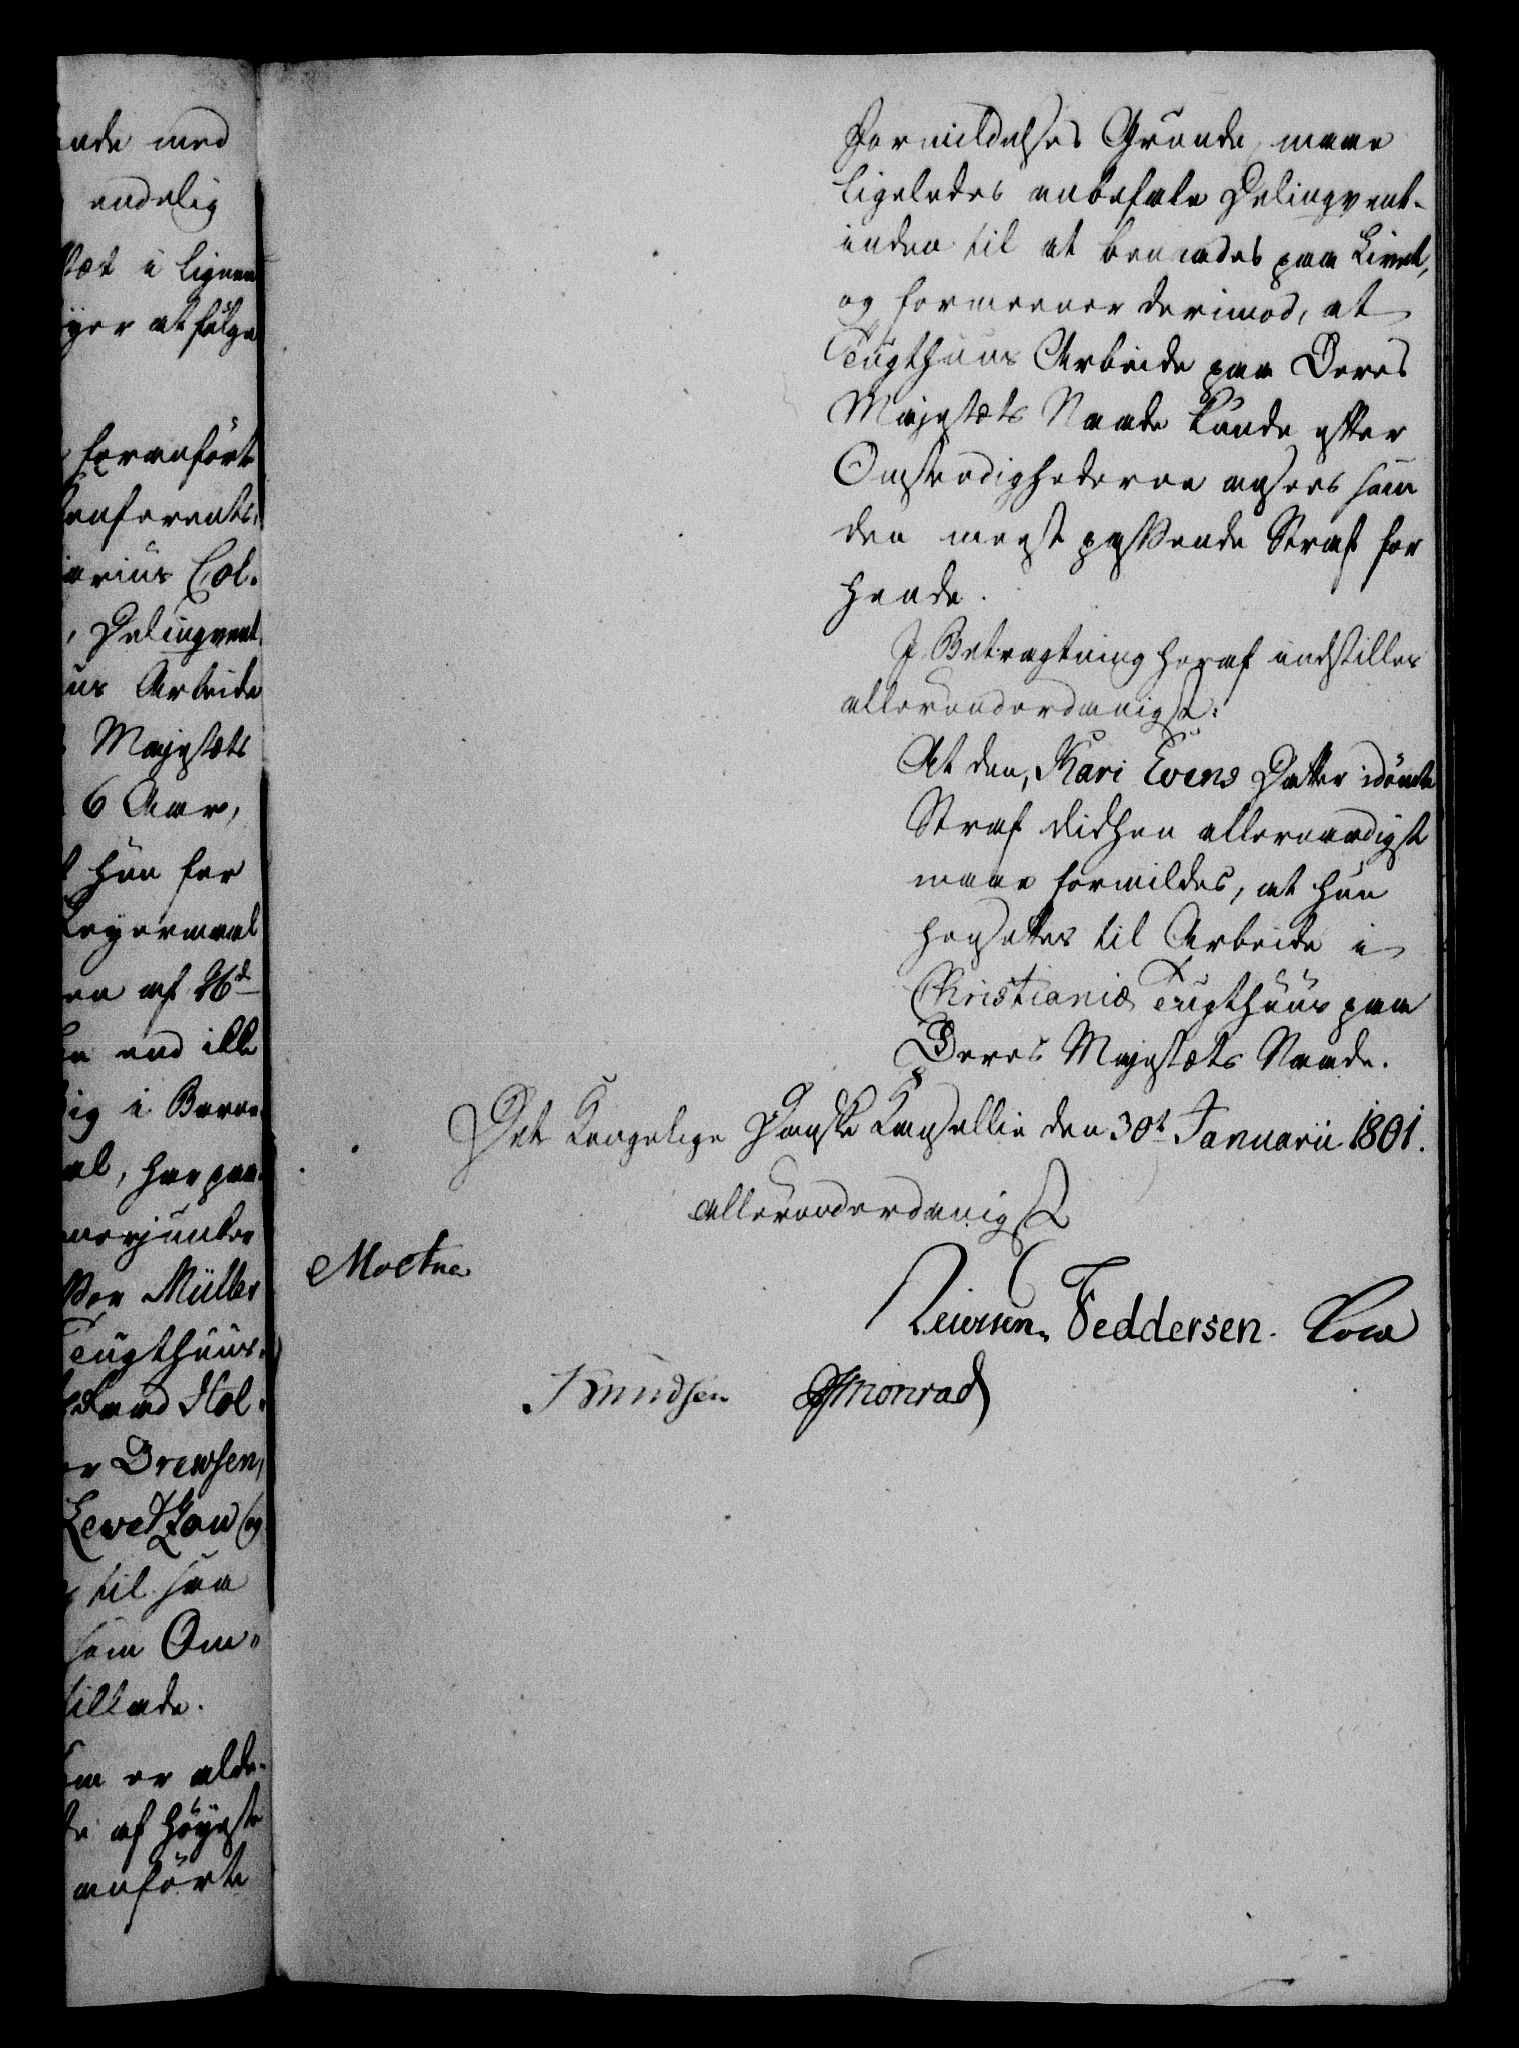 ende med
endelig
tæt i lignen
yer at følge
foranførte
Conferents-
iarius Col-
, Delinqvent
us Arbeide
Majestæts
6 Aar,
hun for
Leyermaal
en af
end ikke
sig i Barne-
al, har paa-
merjunker
Müller
Tugthuus-
Hol-
Drewsen,
Levetzau og
til saa
som Om-
tillade.
em er alde-
te af høyeste
anførte
Formildelses Grunde, maae
ligeledes anbefale Delinqvent-
inden til at benaades paa Livet,
og formeener derimod, at
Tugthuus Arbeide paa Deres
Majestæts Naade kunde efter
Omstendighederne ansees som
den meest passende Straf for
hende.
I Betragtning heraf indstilles
allerunderdanigst:
At den, Kari Evens Datter idømte
Straf didhen allernaadigst
maae formildes, at hun
hensættes til Arbeide i
Christianiæ Tugthuus paa
Deres Majestæts Naade.
Det Kongelige Danske Kancellie den 30t Januarii 1801.
allerunderdanigst
Moltke
Feddersen.
Knudsen Monrad